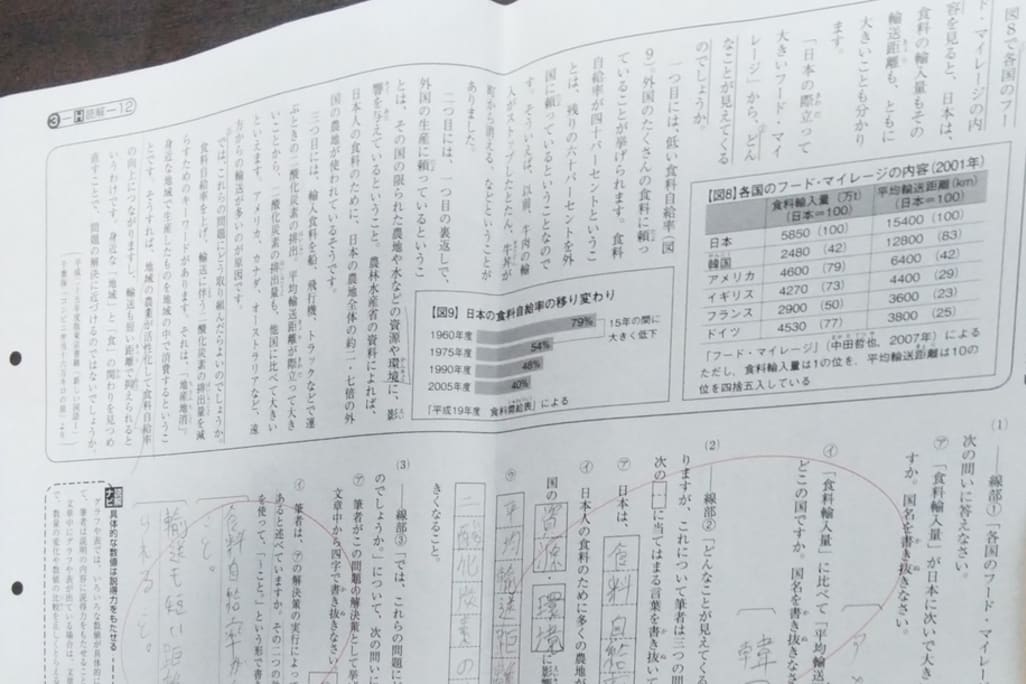 図8で各国のフー
ド・マイレージの内
容を見ると、日本は、
食料の輸入量もその
輸送距離も、ともに
大きいことも分かり
ます。
「日本の際立って
大きいフード・マイ
レージ」から、どん
なことが見えてくる
のでしょうか。
一つ目には、低い食料自給率(図
9)、外国のたくさんの食料に頼っ
ていることが挙げられます。食料
自給率が四十パーセントというこ
とは、残りの六十パーセントを外
国に頼っているということなので
す。そういえば、以前、牛肉の輸
入がストップしたとたん、牛丼が
町から消える、などということが
ありました。
二つ目には、一つ目の裏返しで、
外国の生産に頼っているというこ
とは、その国の限られた農地や水などの資源や環境に、影
響を与えているということ。農林水産省の資料によれば、
日本人の食料のために、日本の農地全体の約二・七倍の外
国の農地が使われているそうです。
三つ目には、輸入食料を船、飛行機、トラックなどで運
ぶときの二酸化炭素の排出。平均輸送距離が際立って大き
いことから、二酸化炭素の排出量も、他国に比べて大きい
といえます。アメリカ、カナダ、オーストラリアなど、遠
方からの輸送が多いのが原因です。
では、これらの問題にどう取り組んだらよいのでしょうか。
食料自給率を上げ、輸送に伴う二酸化炭素の排出量を減
らすためのキーワードがあります。それは、「地産地消」。
身近な地域で生産したものを地域の中で消費するというこ
とです。そうすれば、地域の農業が活性化して食料自給率
の向上につながりますし、輸送も短い距離で抑えられると
いうわけです。身近な「地域」と「食」の関わりを見つめ
直すことで、問題の解決に近づけるのではないでしょうか。
【図8】各国のフード・マイレージの内容(2001年)
食料輸入量(万t) 平均輸送距離(km)
(日本=100) (日本=100)
日本 5850 (100) 15400 (100)
韓国 2480 (42) 12800 (83)
アメリカ 4600 (79) 6400 (42)
イギリス 4270 (73) 4400 (29)
フランス 2900 (50) 3600 (23)
ドイツ 4530 (77) 3800 (25)
「フード・マイレージ」(中田哲也、2007年)による
ただし、食料輸入量は1の位を、平均輸送距離は10の
位を四捨五入している
【図9】日本の食料自給率の移り変わり
1960年度 79%
1975年度 54%
1990年度 48%
2005年度 40%
15年の間に
大きく低下
「平成19年度 食料需給表」による
3-H 読解-12
(1) ──線部①「各国のフード・マイレージ
次の問いに答えなさい。
㋐「食料輸入量」が日本に次いで大き
すか。国名を書き抜きなさい。
ア
㋑「食料輸入量」に比べて「平均輸送
どこの国ですか。国名を書き抜きなさ
韓
(2) ──線部②「どんなことが見えてくる
りますが、これについて筆者は三つの問
次の□に当てはまる言葉を書き抜いて
㋐ 日本は、食料自給
㋑ 日本人の食料のために多くの農地が
国の資源・環境に影響
㋒ 平均輸送距離
二酸化炭素の
きくなること。
(3) ──線部③「では、これらの問題に
のでしょうか。」について、次の問い
㋐ 筆者がこの問題の解決策として挙
文章中から四字で書き抜きなさい
㋑ 筆者は、㋐の解決策の実行によっ
あると述べていますか。その二つの
を使って、「〜こと。」という形で書き
食料自給率が
こと。
輸送も短い距
られること。
読解ナビ 具体的な数値は説得力をもたせる
グラフや表では、いろいろな数値が具体的に
す。筆者は説明の内容に説得力をもたせること
文章中にグラフや表が出ている場合は、文章
て、数量の変化や数値の比較を正しくとらえ